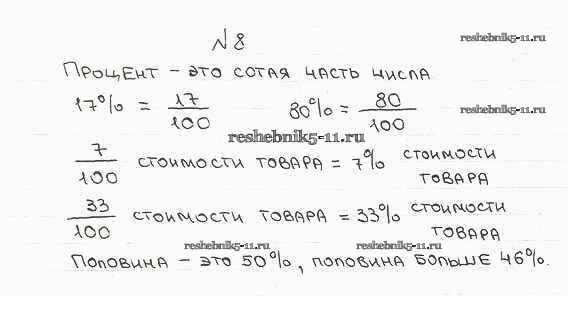 №8
reshebnik5-11.ru
Процент – это сотая часть числа
17% = 17/100 80% = 80/100
reshebnik5-11.ru
reshebnik5-11.ru
7/100 стоимости товара = 7% стоимости товара
33/100 стоимости товара = 33% стоимости товара
reshebnik5-11.ru reshebnik5-11.ru
Половина – это 50%, половина больше 46%.